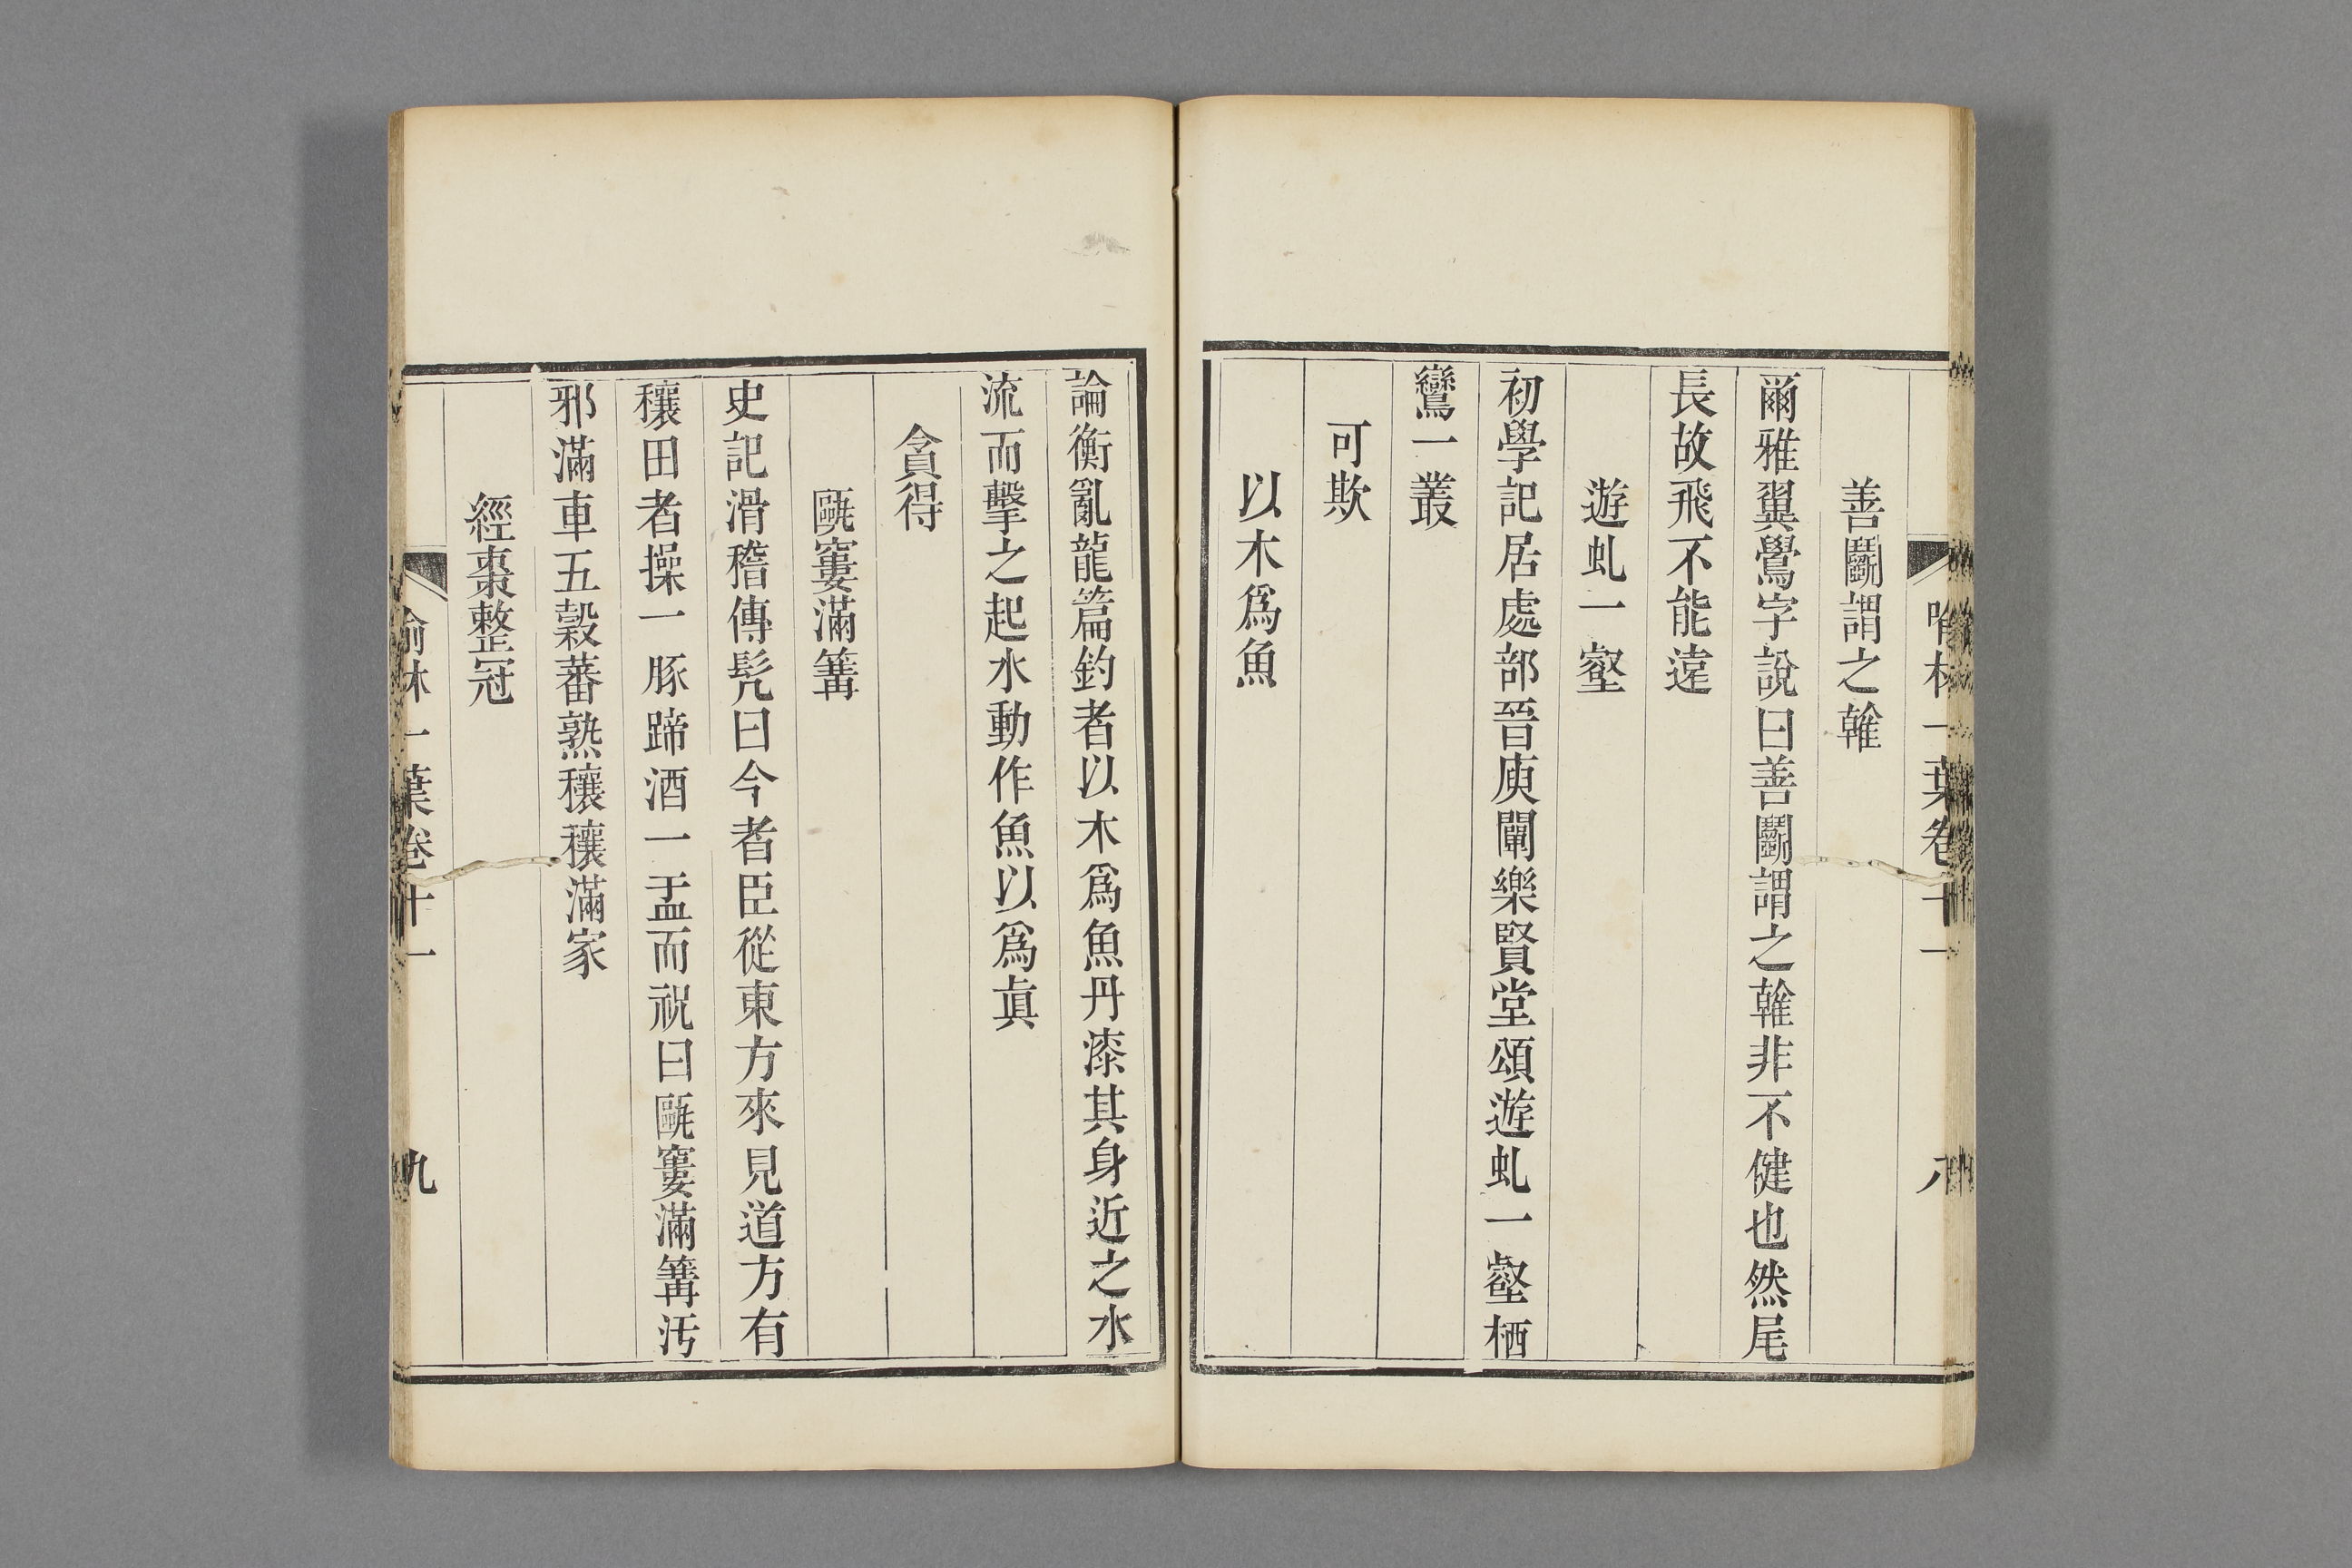 善鬭謂之雗
爾雅翼鷽字說曰善鬭謂之雗非不健也然尾
長故飛不能遠
遊虬一壑
初學記居處部晉庾闡樂賢堂頌遊虬一壑栖
鸞一叢
可欺
以木爲魚
喻林一葉卷十一
八
論衡亂龍篇釣者以木爲魚丹漆其身近之水
流而擊之起水動作魚以爲眞
貪得
甌窶滿篝
史記滑稽傳髡曰今者臣從東方來見道方有
穰田者操一豚蹄酒一盂而祝曰甌窶滿篝汚
邪滿車五穀蕃熟穰穰滿家
經棗整冠
喻林一葉卷十一
九